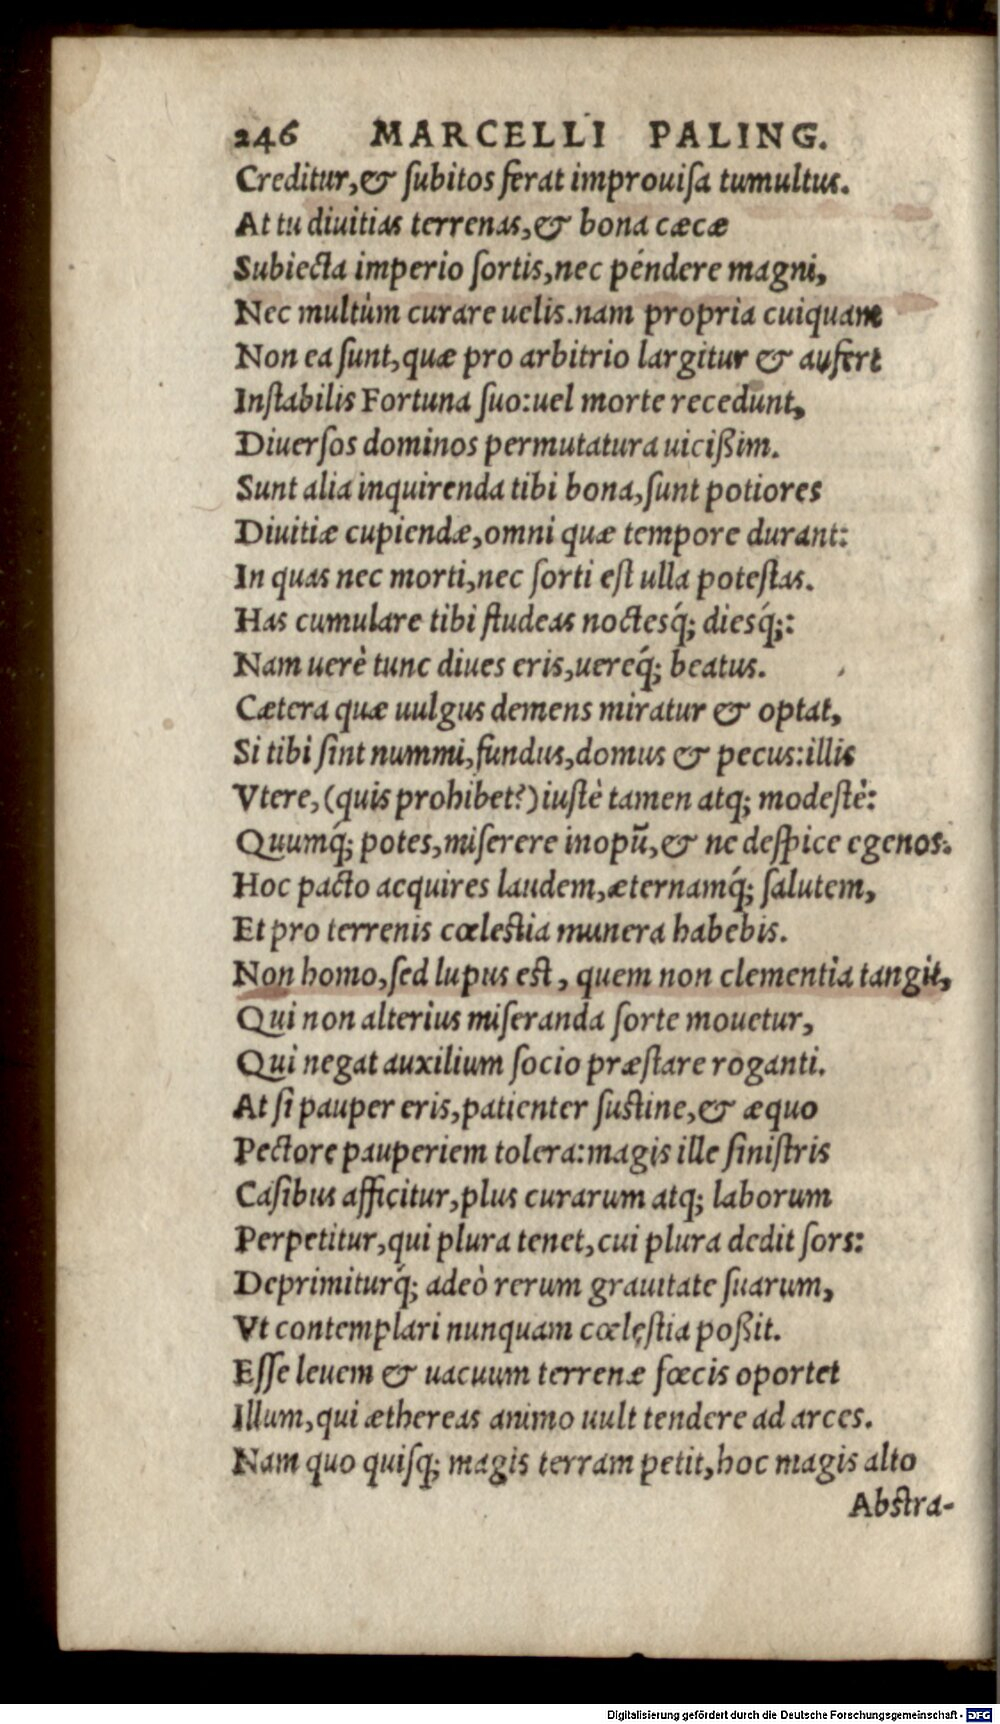 246 MARCELLI PALING.
Creditur,& ſubitos ferat improuiſa tumultus.
At tu diuitias terrenas,& bona cæcæ
Subiecta imperio ſortis,nec péndere magni,
Nec multùm curare uelis.nam propria cuiquam
Non ea ſunt,quæ pro arbitrio largitur & aufert
Inſtabilis Fortuna ſuo:uel morte recedunt,
Diuerſos dominos permutatura uicißim.
Sunt alia inquirenda tibi bona,ſunt potiores
Diuitiæ cupiendæ,omni quæ tempore durant:
In quas nec morti,nec ſorti eſt ulla poteſtas.
Has cumulare tibi ſtudeas noctesq́; diesq́;:
Nam uerè tunc diues eris,uereq́; beatus.
Cætera quæ uulgus demens miratur & optat,
Si tibi ſint nummi,fundus,domus & pecus:illis
Vtere,(quis prohibet?)iuſtè tamen atq; modeſtè:
Quumq́; potes,miſerere inopũ,& ne deſpice egenos.
Hoc pacto acquires laudem,æternamq́; ſalutem,
Et pro terrenis cœleſtia munera habebis.
Non homo,ſed lupus eſt, quem non clementia tangit,
Qui non alterius miſeranda ſorte mouetur,
Qui negat auxilium ſocio præſtare roganti.
At ſi pauper eris,patienter ſuſtine,& æquo
Pectore pauperiem tolera:magis ille ſiniſtris
Caſibus afficitur,plus curarum atq; laborum
Perpetitur,qui plura tenet,cui plura dedit ſors:
Deprimiturq́; adeò rerum grauitate ſuarum,
Vt contemplari nunquam cœleſtia poßit.
Eſſe leuem & uacuum terrenæ fœcis oportet
Illum,qui æthereas animo uult tendere ad arces.
Nam quo quiſq; magis terram petit,hoc magis alto
Abſtra-
Digitalisierung gefördert durch die Deutsche Forschungsgemeinschaft - DFG